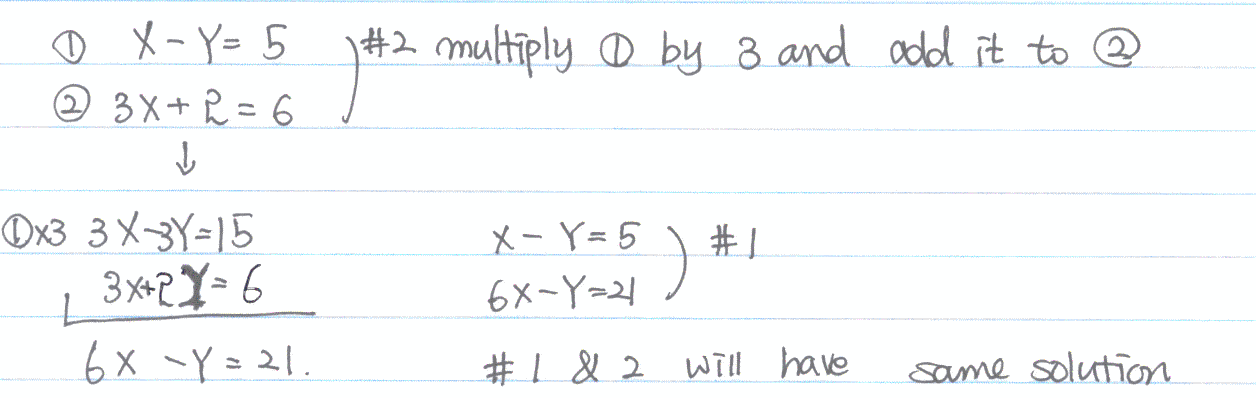 ① X - Y = 5 #2 multiply ① by 3 and add it to ②
② 3X + 2 = 6
↓
①x3 3X-3Y=15
3x+2Y=6
6X -Y = 21.
X - Y = 5 #1
6X-Y=21
#1 & 2 will have same solution